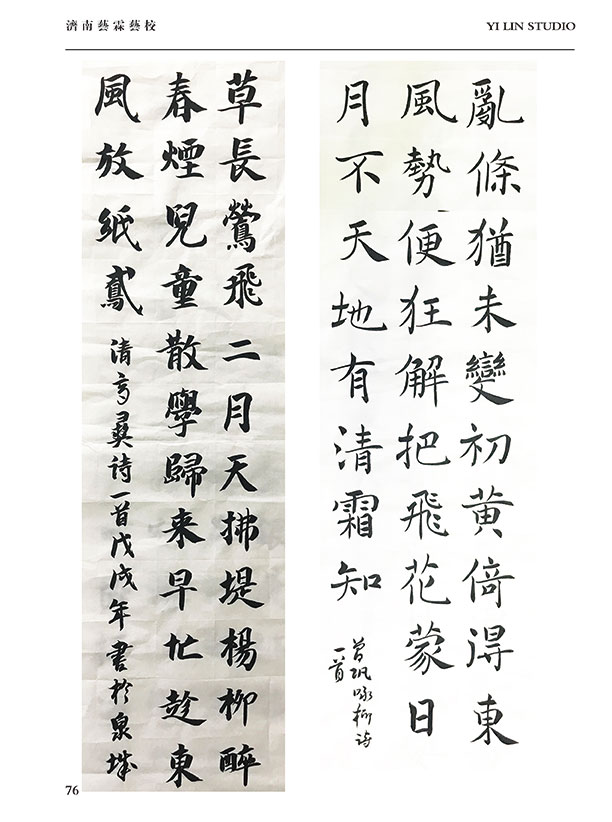 濟南藝霖藝校
YI LIN STUDIO
亂條猶未變初黃倚得東
風勢便狂解把飛花蒙日
月不天地有清霜知
曾巩咏柳诗
一首
草長鶯飛二月天拂堤楊柳醉
春煙兒童散學歸来早忙趁東
風放紙鳶
清诗一首戊戌年書於泉城
76